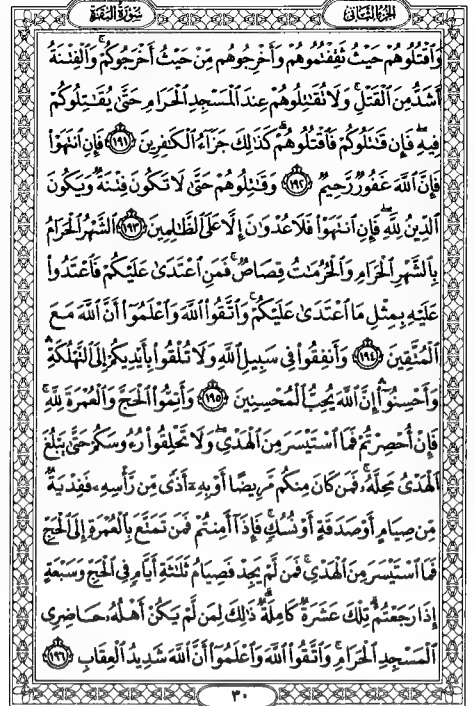 الجزء الثاني
سورة البقرة
وَٱقْتُلُوهُمْ حَيْثُ ثَقِفْتُمُوهُمْ وَأَخْرِجُوهُم مِّنْ حَيْثُ أَخْرَجُوكُمْ ۚ وَٱلْفِتْنَةُ
أَشَدُّ مِنَ ٱلْقَتْلِ ۚ وَلَا تُقَٰتِلُوهُمْ عِندَ ٱلْمَسْجِدِ ٱلْحَرَامِ حَتَّىٰ يُقَٰتِلُوكُمْ
فِيهِ ۖ فَإِن قَٰتَلُوكُمْ فَٱقْتُلُوهُمْ ۗ كَذَٰلِكَ جَزَآءُ ٱلْكَٰفِرِينَ ﴿١٩١﴾ فَإِنِ ٱنتَهَوْا۟
فَإِنَّ ٱللَّهَ غَفُورٌ رَّحِيمٌ ﴿١٩٢﴾ وَقَٰتِلُوهُمْ حَتَّىٰ لَا تَكُونَ فِتْنَةٌ وَيَكُونَ
ٱلدِّينُ لِلَّهِ ۖ فَإِنِ ٱنتَهَوْا۟ فَلَا عُدْوَٰنَ إِلَّا عَلَى ٱلظَّٰلِمِينَ ﴿١٩٣﴾ ٱلشَّهْرُ ٱلْحَرَامُ
بِٱلشَّهْرِ ٱلْحَرَامِ وَٱلْحُرُمَٰتُ قِصَاصٌ ۚ فَمَنِ ٱعْتَدَىٰ عَلَيْكُمْ فَٱعْتَدُوا۟
عَلَيْهِ بِمِثْلِ مَا ٱعْتَدَىٰ عَلَيْكُمْ ۚ وَٱتَّقُوا۟ ٱللَّهَ وَٱعْلَمُوٓا۟ أَنَّ ٱللَّهَ مَعَ
ٱلْمُتَّقِينَ ﴿١٩٤﴾ وَأَنفِقُوا۟ فِى سَبِيلِ ٱللَّهِ وَلَا تُلْقُوا۟ بِأَيْدِيكُمْ إِلَى ٱلتَّهْلُكَةِ ۛ
وَأَحْسِنُوٓا۟ ۛ إِنَّ ٱللَّهَ يُحِبُّ ٱلْمُحْسِنِينَ ﴿١٩٥﴾ وَأَتِمُّوا۟ ٱلْحَجَّ وَٱلْعُمْرَةَ لِلَّهِ ۚ
فَإِنْ أُحْصِرْتُمْ فَمَا ٱسْتَيْسَرَ مِنَ ٱلْهَدْىِ ۖ وَلَا تَحْلِقُوا۟ رُءُوسَكُمْ حَتَّىٰ يَبْلُغَ
ٱلْهَدْىُ مَحِلَّهُۥ ۚ فَمَن كَانَ مِنكُم مَّرِيضًا أَوْ بِهِۦٓ أَذًى مِّن رَّأْسِهِۦ فَفِدْيَةٌ
مِّن صِيَامٍ أَوْ صَدَقَةٍ أَوْ نُسُكٍ ۚ فَإِذَآ أَمِنتُمْ فَمَن تَمَتَّعَ بِٱلْعُمْرَةِ إِلَى ٱلْحَجِّ
فَمَا ٱسْتَيْسَرَ مِنَ ٱلْهَدْىِ ۚ فَمَن لَّمْ يَجِدْ فَصِيَامُ ثَلَٰثَةِ أَيَّامٍ فِى ٱلْحَجِّ وَسَبْعَةٍ
إِذَا رَجَعْتُمْ ۗ تِلْكَ عَشَرَةٌ كَامِلَةٌ ۗ ذَٰلِكَ لِمَن لَّمْ يَكُنْ أَهْلُهُۥ حَاضِرِى
ٱلْمَسْجِدِ ٱلْحَرَامِ ۚ وَٱتَّقُوا۟ ٱللَّهَ وَٱعْلَمُوٓا۟ أَنَّ ٱللَّهَ شَدِيدُ ٱلْعِقَابِ ﴿١٩٦﴾
٣٠